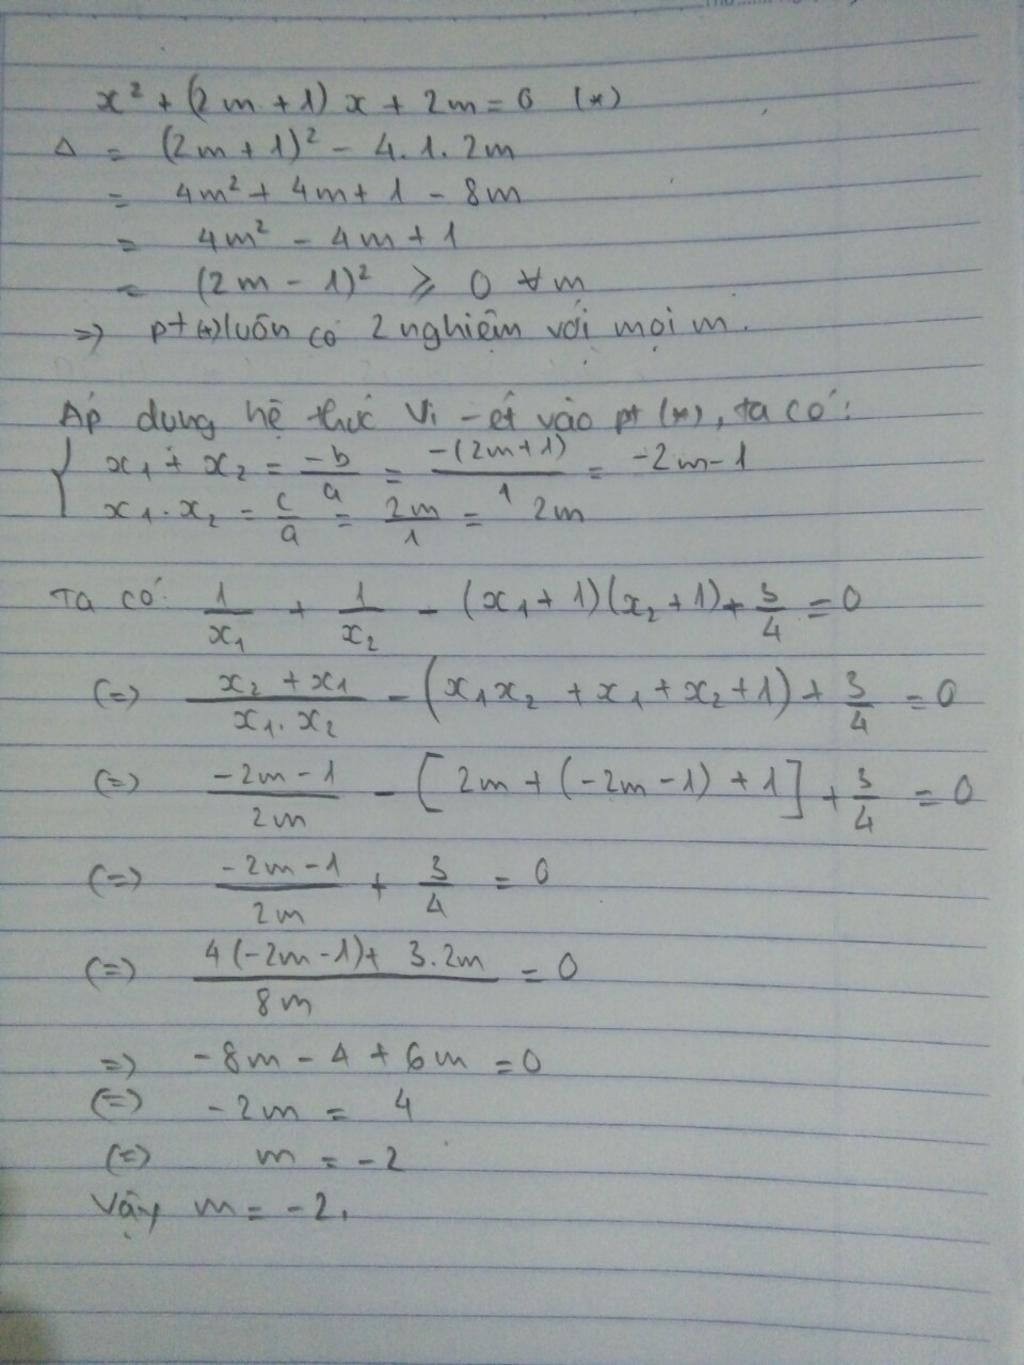 x² + (2m + 1) x + 2m = 0 (*)
Δ = (2m + 1)² - 4.1.2m
= 4m² + 4m + 1 - 8m
= 4m² - 4m + 1
= (2m - 1)² ⩾ 0 ∀m
=> pt (*) luôn có 2 nghiệm với mọi m.
Áp dụng hệ thức Vi-ét vào pt (*), ta có:
{ x₁ + x₂ = -b/a = -(2m+1)/1 = -2m-1
x₁.x₂ = c/a = 2m/1 = 2m
Ta có: 1/x₁ + 1/x₂ - (x₁ + 1)(x₂ + 1) + 3/4 = 0
(=) (x₂ + x₁)/(x₁.x₂) - (x₁x₂ + x₁ + x₂ + 1) + 3/4 = 0
(=) (-2m - 1)/2m - [2m + (-2m - 1) + 1] + 3/4 = 0
(=) (-2m - 1)/2m + 3/4 = 0
(=) (4(-2m-1) + 3.2m)/8m = 0
=> -8m - 4 + 6m = 0
(=) -2m = 4
(=) m = -2
Vậy m = -2.